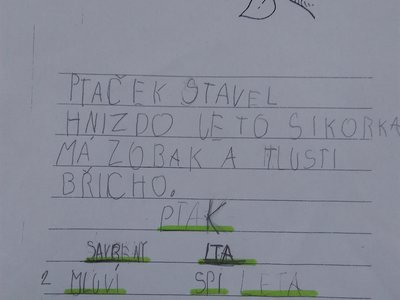 PTAČEK STAVEL
HNIZDO JE TO SIKORKA
MÁ ZOBAK A TLUSTI
BŘICHO.
PTAK
ITA
2 MLUVÍ SPI LETA